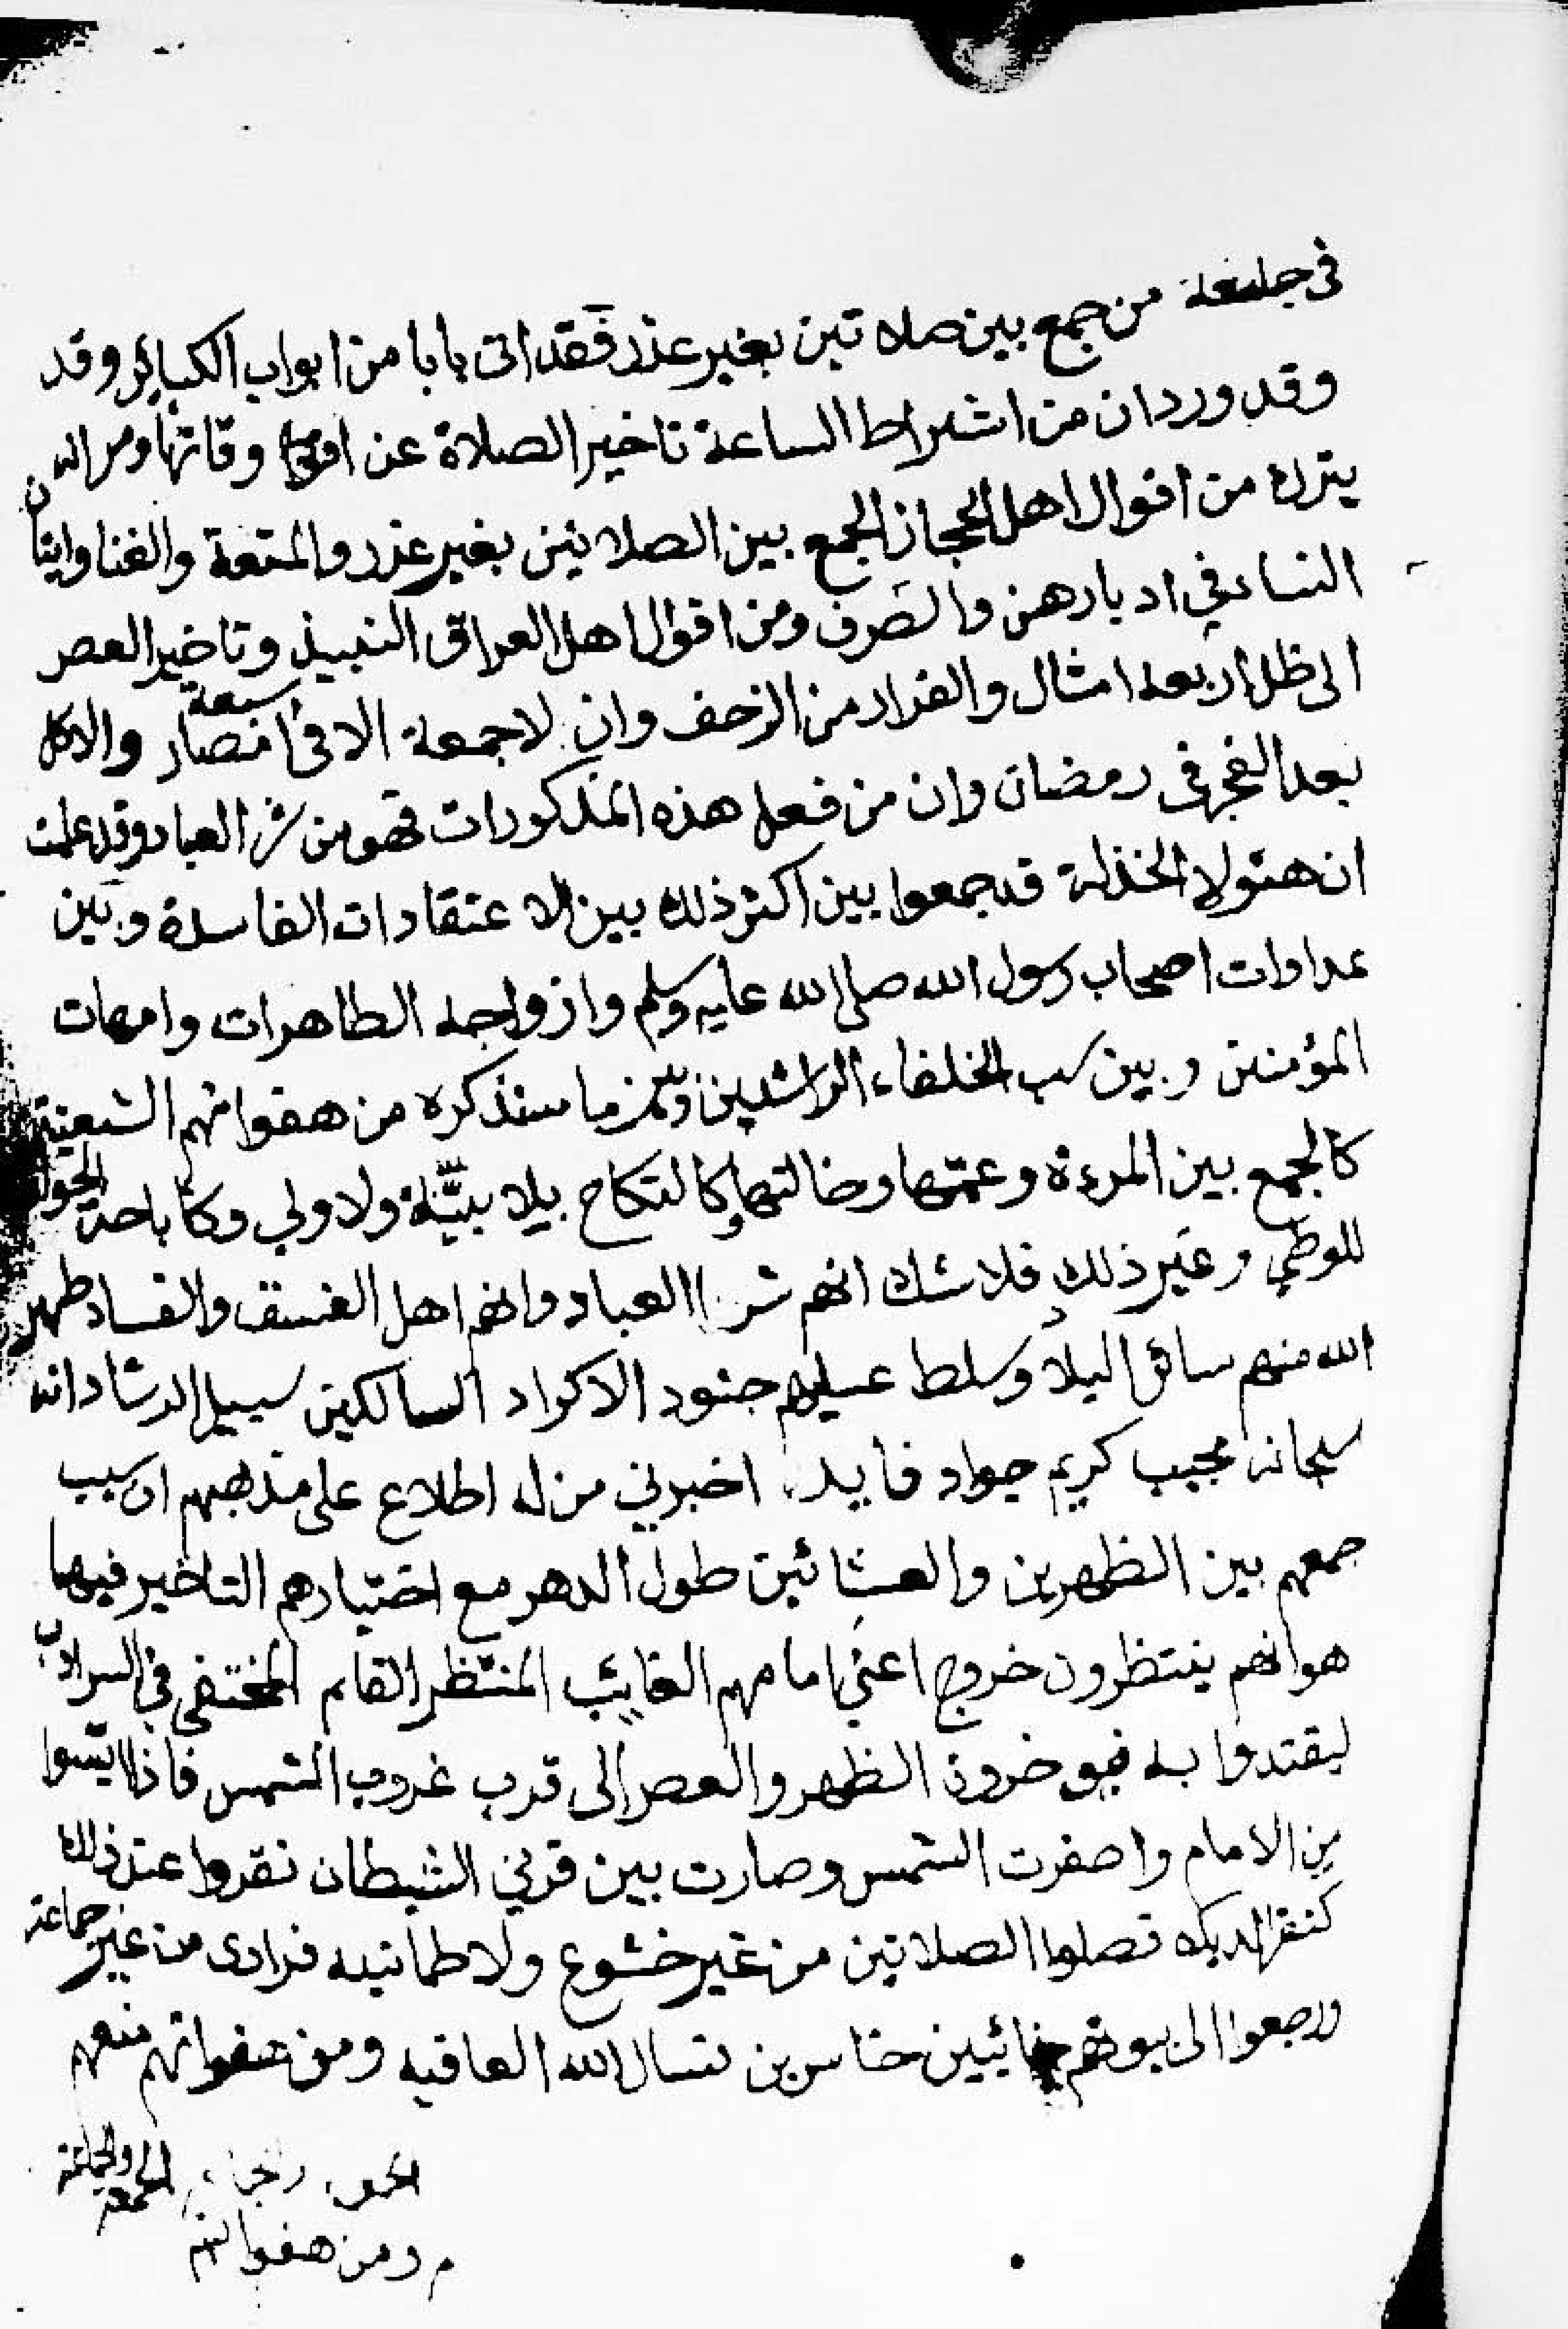 في جامعه من جمع بين صلاه تين بغير عذر فقد اتى بابا من ابواب الكبائر وقد
وقد ورد ان من اشراط الساعة تاخير الصلاة عن وقاتها ومر
يترك من اقوال اهل الحجاز الجمع بين الصلاتين بغير عذر والمتعة والغنا واتيان
النساء في ادبارهن والصرف ومن اقوال اهل العراق النبيذ وتاخير العصر
الى ظل اربعه امثال والفرار من الزحف وان لا جمعة الا في سبعة امصار والاكل
بعد الفجر في رمضان وان من فعل هذه المذكورات فهو من شر العباد وقد علمت
ان هئولاء الخذلة قد جمعوا بين اكثر ذلك بين الاعتقادات الفاسدة وبين
عداوات اصحاب رسول الله صلى الله عليه وسلم وازواجه الطاهرات وامهات
المؤمنين وبين سب الخلفاء الراشدين وبين ما سنذكره من هفواتهم الشنيعة
كالجمع بين المرءة وعمتها وخالتها وكالنكاح بلا بيّنة ولا ولي وكاباحة الجوار
للوطي وغير ذلك فلا شك انهم شر العباد وانهم اهل الفسق والفساد طهر
الله منهم سائر البلاد وسلط عليهم جنود الاكراد السالكين سبيل الرشاد انه
سبحانه مجيب كريم جواد فايده اخبرني من له اطلاع على مذهبهم ان سبب
جمعهم بين الظهرين والعشائين طول الدهر مع اختيارهم التاخير فيها
هو انهم ينتظرون خروج اعني امامهم الغايب المنتظر القام المختفي في السرداب
ليقتدوا به فيوخرون الظهر والعصر الى قرب غروب الشمس فاذا ايئسوا
من الامام واصفرت الشمس وصارت بين قرني الشيطان نقروا عند ذلك
كنقر الديكه فصلوا الصلاتين من غير خشوع ولا طمانيه فرادى من غير جماعة
ورجعوا الى بيوتهم خائبين خاسرين نسال الله العافيه ومن هفواتهم منعهم
الجمعة والجماعة
ومن هفواتهم